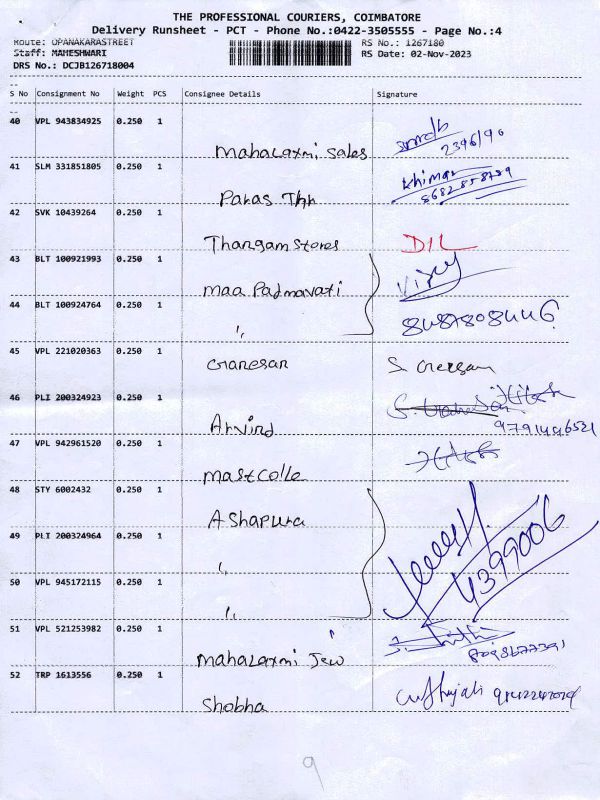 THE PROFESSIONAL COURIERS, COIMBATORE
Delivery Runsheet - PCT - Phone No.:0422-3505555 - Page No.:4
Route: OPANAKARASTREET RS No.: 1267180
Staff: MAHESHWARI RS Date: 02-Nov-2023
DRS No.: DCJB126718004
S No Consignment No Weight PCS Consignee Details Signature
40 VPL 943834925 0.250 1
Mahalaxmi Sales
2396/90
41 SLM 331851805 0.250 1
Paras Thr
Khimar
8682858789
42 SVK 10439264 0.250 1
Thangam Stores DIL
43 BLT 100921993 0.250 1
Maa Padmavati Vijay
44 BLT 100924764 0.250 1
" 8487808446
45 VPL 221020363 0.250 1
Ganesan S.
46 PLI 200324923 0.250 1
Arvind Hitesh
9791446521
47 VPL 942961520 0.250 1
Mastcolle Hitesh
48 STY 6002432 0.250 1
Ashapura
49 PLI 200324964 0.250 1
"
4399006
50 VPL 945172115 0.250 1
"
51 VPL 521253982 0.250 1
Mahalaxmi Jew
8098677391
52 TRP 1613556 0.250 1
Shobha
9